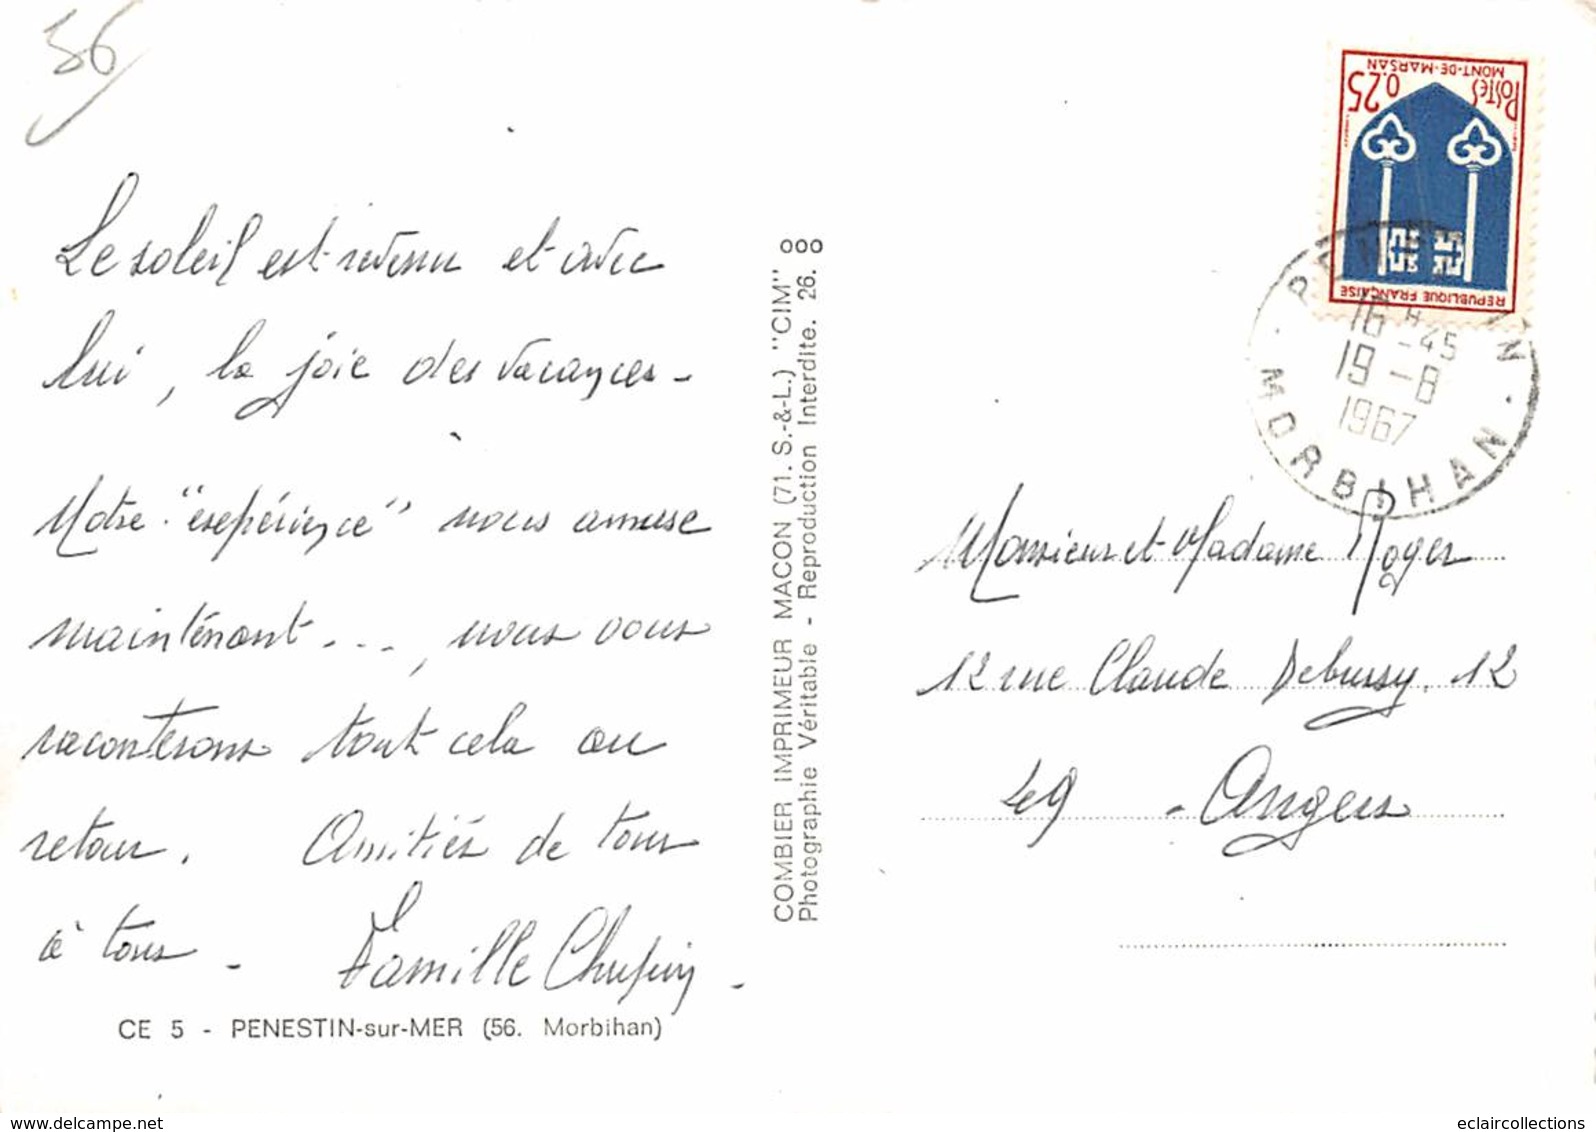 56
Le soleil est revenu et avec
lui, la joie des vacances -
Notre "expérience" nous amuse
maintenant ..., nous vous
raconterons tout cela au
retour. Amitiés de tous
à tous - Famille Chupin -
CE 5 - PENESTIN-sur-MER (56. Morbihan)
COMBIER IMPRIMEUR MACON (71. S.-&-L.) "CIM"
Photographie Véritable - Reproduction Interdite. 26.
MONT-DE-MARSAN
POSTES
0.25
REPUBLIQUE FRANÇAISE
16 H -45
19-8
1967
MORBIHAN
Monsieur et Madame Roger
12 rue Claude Debussy, 12
49 - Angers
www.delcampe.net
eclaircollections